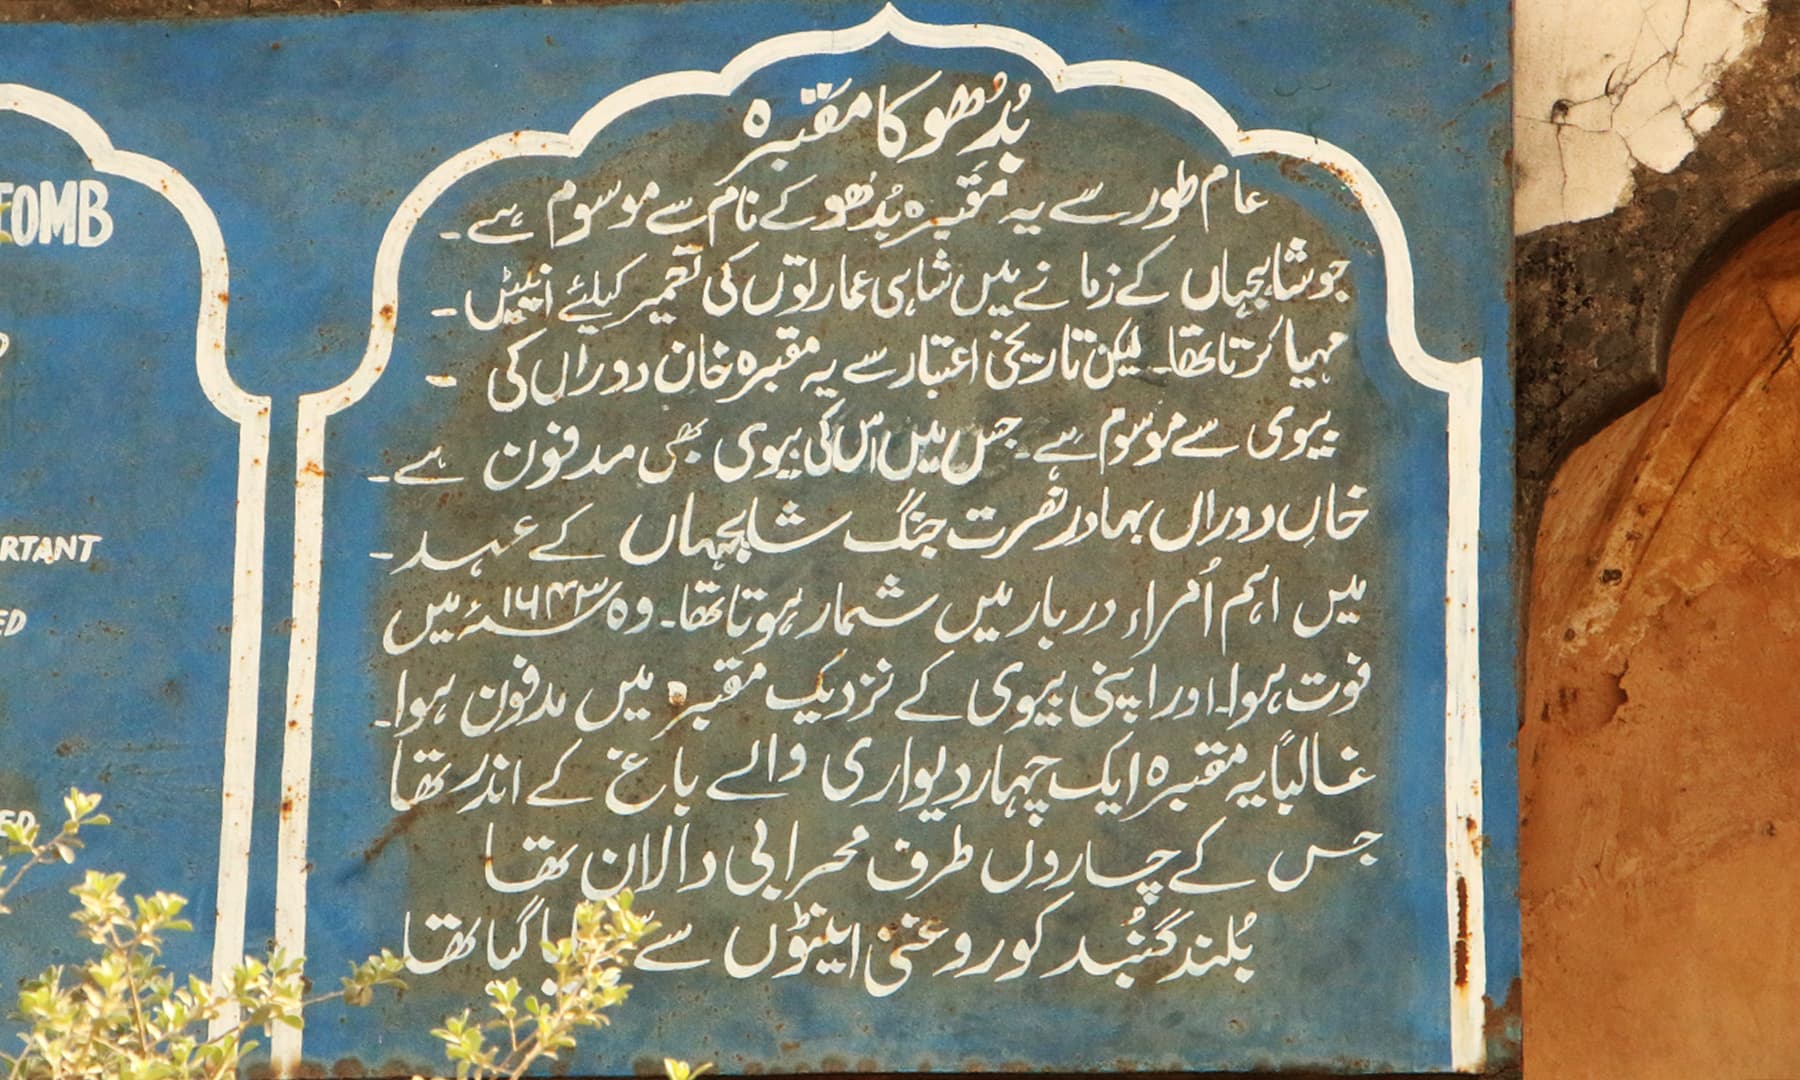 بُدُھو کا مقبرہ
عام طور سے یہ مقبرہ بُدُھو کے نام سے موسوم ہے۔
جو شاہجہاں کے زمانے میں شاہی عمارتوں کی تعمیر کیلئے اینٹیں۔
مہیا کرتا تھا۔ لیکن تاریخی اعتبار سے یہ مقبرہ خان دوراں کی ۔
بیوی سے موسوم ہے۔ جس میں اس کی بیوی بھی مدفون ہے۔
خاں دوراں بہادر نصرت جنگ شاہجہاں کے عہد۔
میں اہم اُمراء دربار میں شمار ہوتا تھا۔ وہ ۱۶۴۳ء میں
فوت ہوا۔ اور اپنی بیوی کے نزدیک مقبرہ میں مدفون ہوا۔
غالباً یہ مقبرہ ایک چہار دیواری والے باغ کے اندر تھا
جس کے چاروں طرف محرابی دالان تھا
بُلند گنُبد کو روغنی اینٹوں سے گیا تھا
TOMB
RTANT
ED
ED